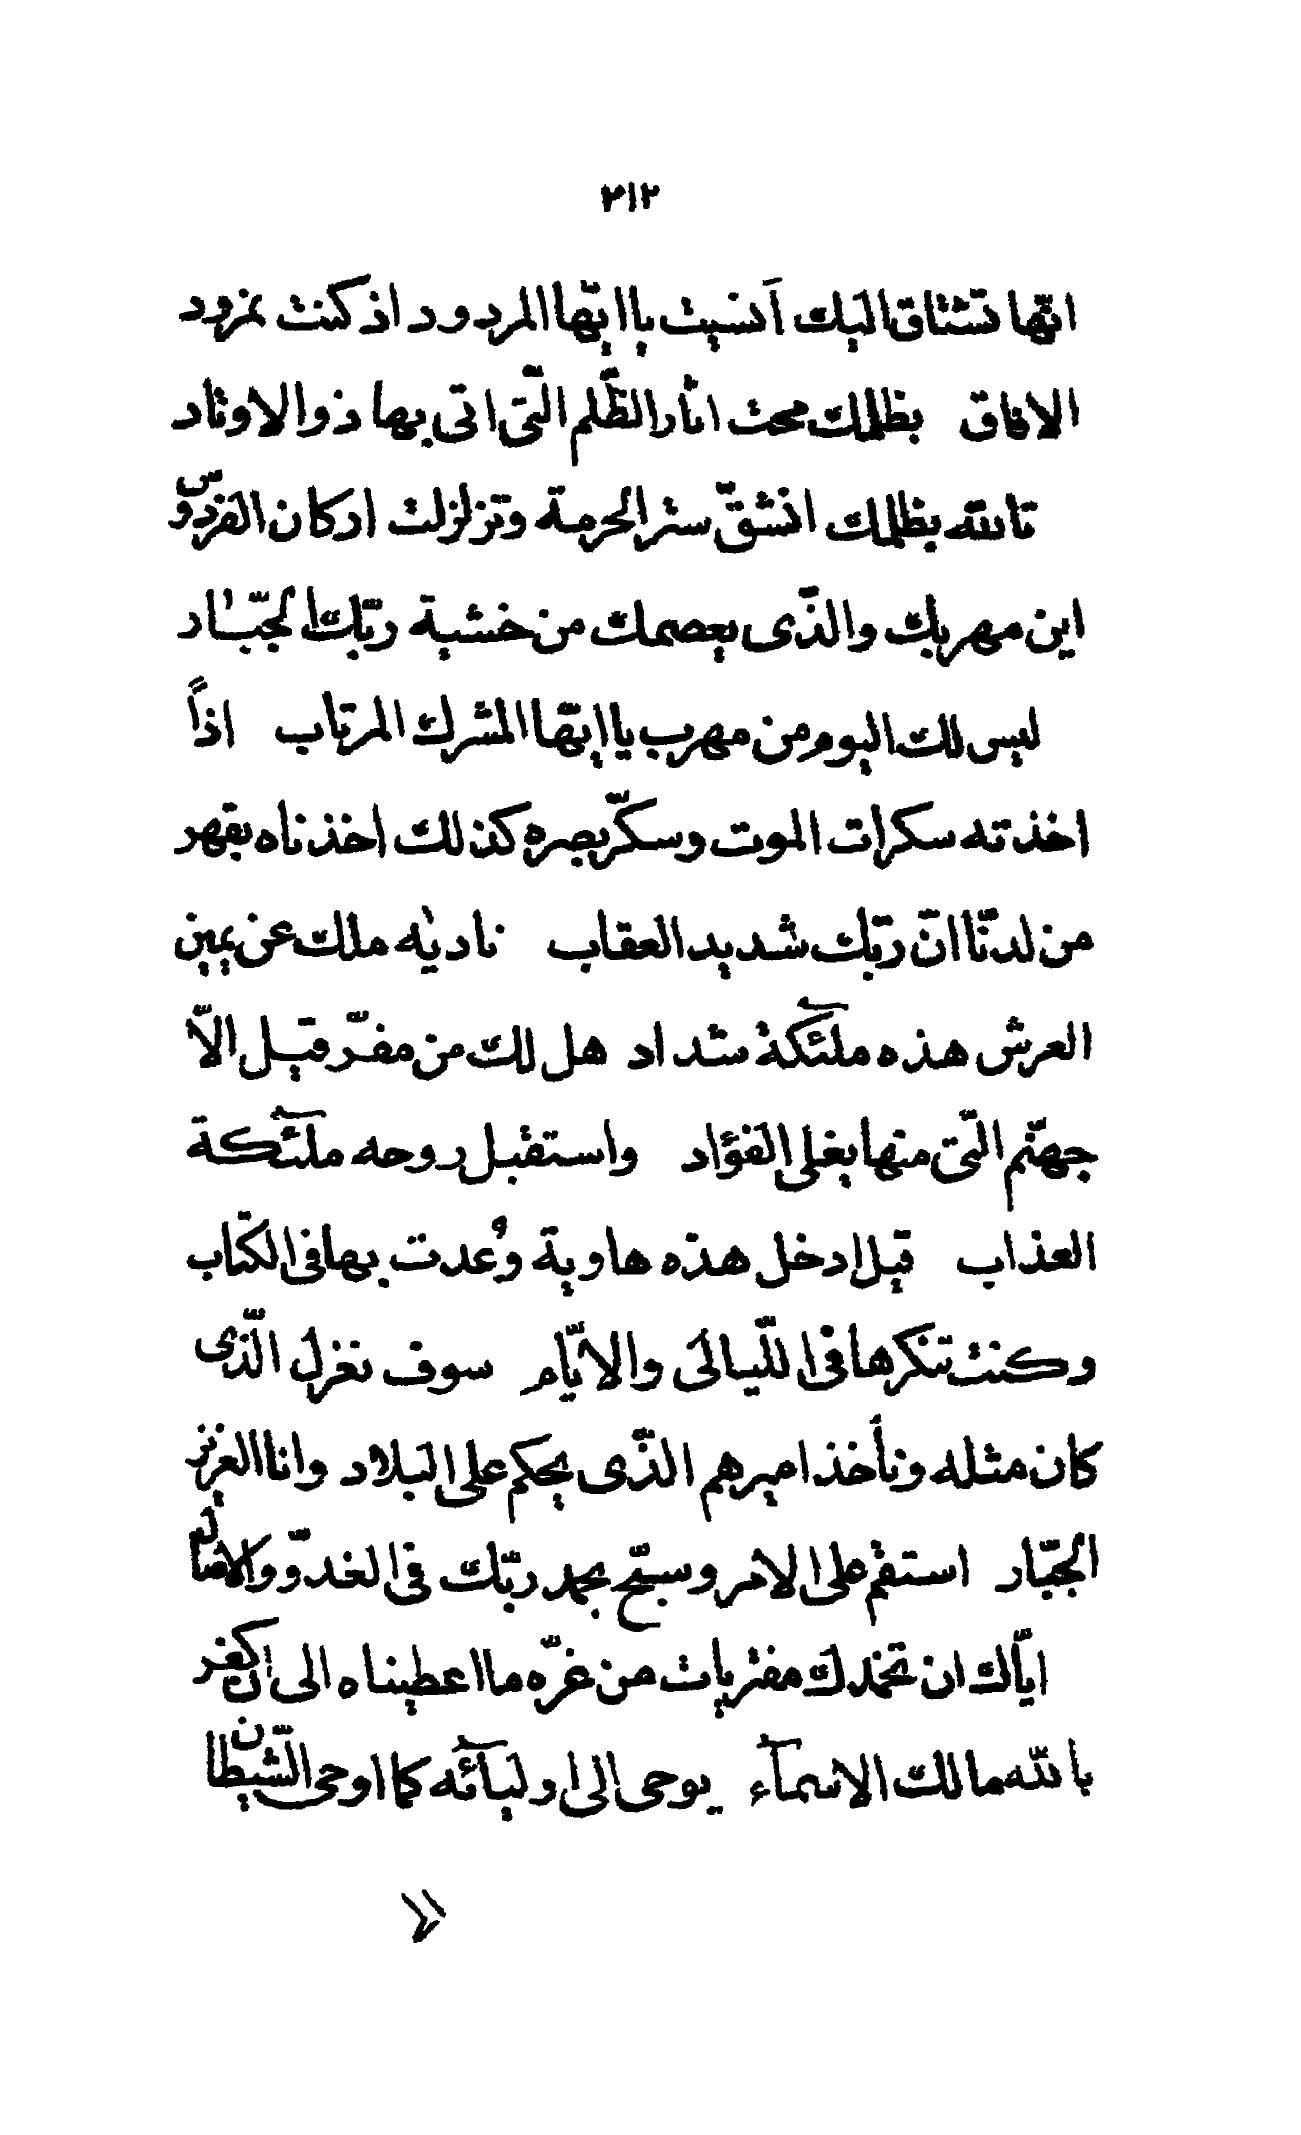 ٢١٢
انّها تشتاق اليك أنسيت يا ايّها المردود اذ كنت نمرود
الافاق بظلمك محت اثار الظّلم الّتى اتى بها ذو الاوتاد
تالله بظلمك انشقّ ستر الحرمة وتزلزلت اركان الفردوس
اين مهربك والّذى يعصمك من خشية ربّك الجبّار
ليس لك اليوم من مهرب يا ايّها المشرك المرتاب اذاً
اخذته سكرات الموت وسكّر بصره كذلك اخذناه بقهر
من لدنّا انّ ربّك شديد العقاب ناديٰه ملك عن يمين
العرش هذه ملٓئكة شداد هل لك من مفرّ قيل الّا
جهنّم الّتى منها يغلى الفؤاد واستقبل روحه ملٓئكة
العذاب قيل ادخل هذه هاوية وُعدت بها فى الكتاب
وكنت تنكرها فى اللّيالى والايّام سوف نعزل الّذى
كان مثله ونأخذ اميرهم الّذى يحكم على البلاد وانا العزيز
الجبّار استقم على الامر وسبّح بحمد ربّك فى الغدوّ والاصال
ايّاك ان تخمدك مفتريات من غرّه ما اعطيناه الى ان كفر
بالله مالك الاسمآء يوحى الى اوليآئه كما اوحى الشّيطان
الى